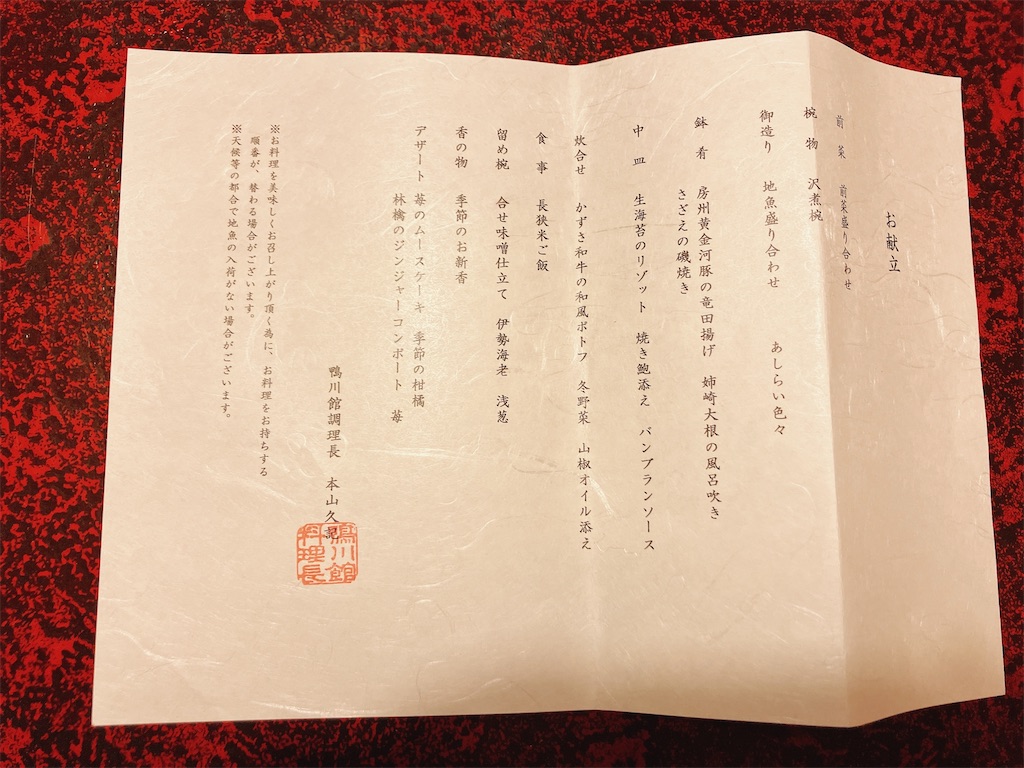 お献立
前菜　前菜盛り合わせ
椀物　沢煮椀
御造り　地魚盛り合わせ　あしらい色々
鉢肴　房州黄金河豚の竜田揚げ　姉崎大根の風呂吹き
さざえの磯焼き
中皿　生海苔のリゾット　焼き鮑添え　バンブランソース
炊合せ　かずさ和牛の和風ポトフ　冬野菜　山椒オイル添え
食事　長狭米ご飯
留め椀　合せ味噌仕立て　伊勢海老　浅葱
香の物　季節のお新香
デザート　苺のムースケーキ　季節の柑橘
林檎のジンジャーコンポート　苺
鴨川館調理長　本山久記
鴨川館
料理長
※お料理を美味しくお召し上がり頂く為に、お料理をお持ちする
順番が、替わる場合がございます。
※天候等の都合で地魚の入荷がない場合がございます。